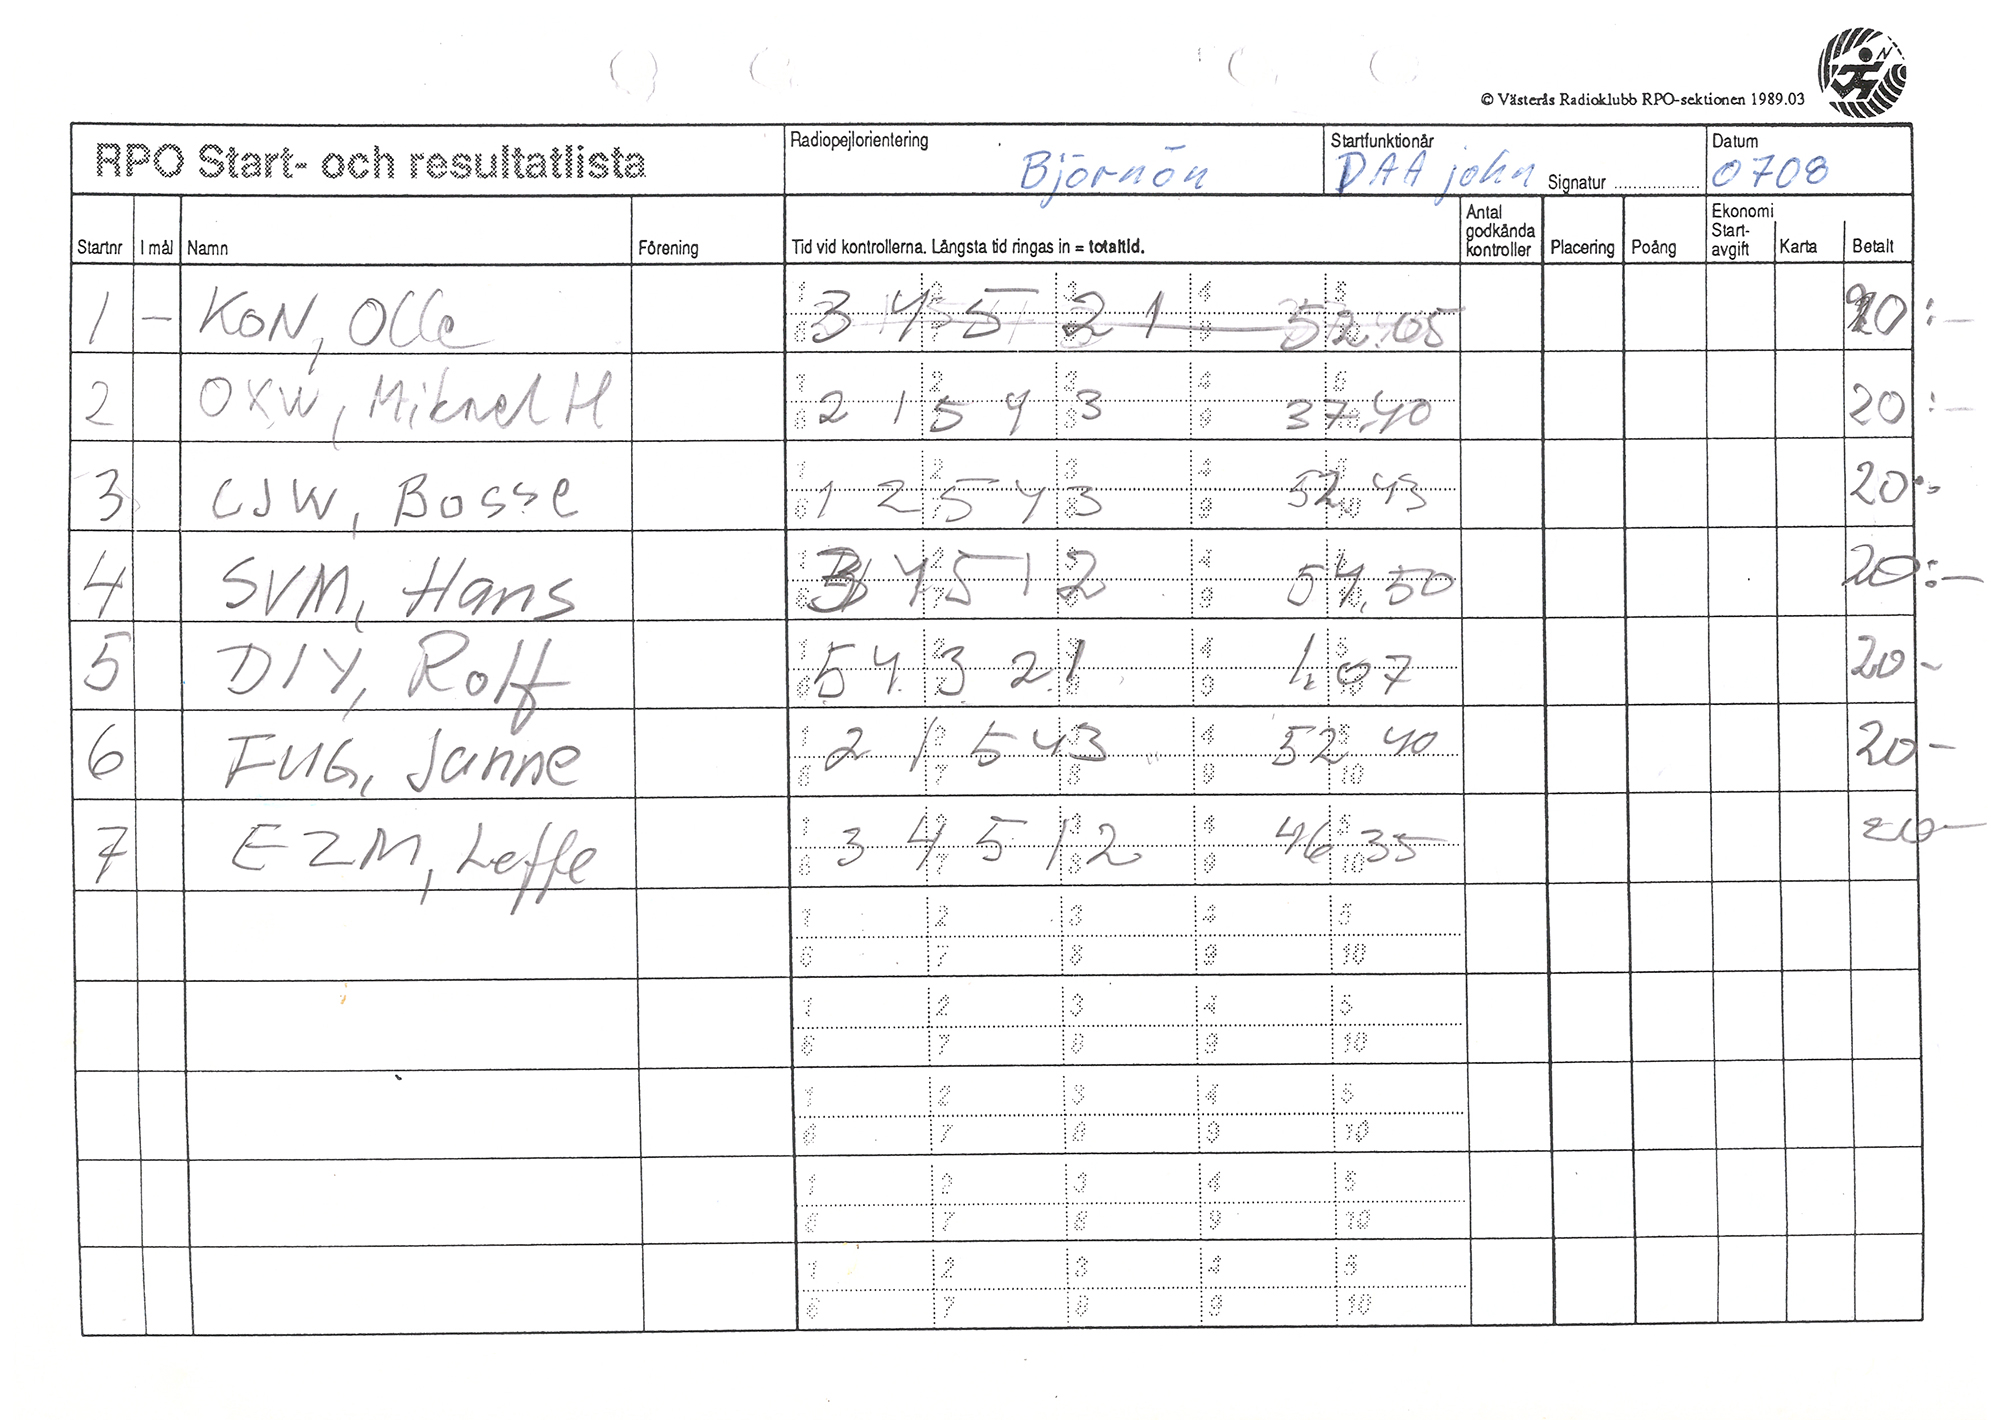 © Västerås Radioklubb RPO-sektionen 1989.03
N
RPO Start- och resultatlista
Radiopejlorientering
Björnön
Startfunktionär
DAA john Signatur ..................
Datum
0708
Startnr I mål Namn Förening Tid vid kontrollerna. Längsta tid ringas in = totaltid. Antal godkända kontroller Placering Poäng Ekonomi Start-avgift Karta Betalt
1 – KON, Olle 3 4 5 2 1 52.05 20:–
2 OXW, Mikael H 2 1 5 4 3 37.40 20:–
3 CJW, Bosse 1 2 5 4 3 52 43 20:-
4 SVM, Hans 3 4 5 1 2 54.50 20:–
5 DIY, Rolf 5 4 3 2 1 1.07 20-
6 FUG, Janne 2 1 5 4 3 52 40 20-
7 EZM, Leffe 3 4 5 1 2 46 35 20-
1 2 3 4 5
6 7 8 9 10
1 2 3 4 5
6 7 8 9 10
1 2 3 4 5
6 7 8 9 10
1 2 3 4 5
6 7 8 9 10
1 2 3 4 5
6 7 8 9 10